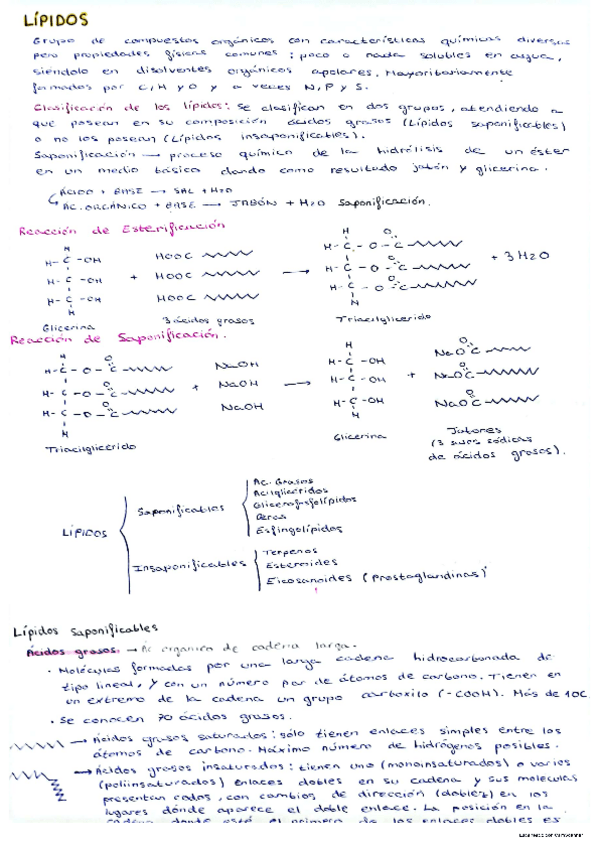 LÍPIDOS
Grupo de compuestos orgánicos con características químicas diversas
pero propiedades físicas comunes: poco o nada solubles en agua,
siéndolo en disolventes orgánicos apolares. Mayoritariamente
formados por C, H y O y a veces N, P y S.
Clasificación de los lípidos: se clasifican en dos grupos, atendiendo a
que posean en su composición ácidos grasos (Lípidos saponificables)
o no los posean (Lípidos insaponificables).
Saponificación → proceso químico de la hidrólisis de un éster
en un medio básico dando como resultado jabón y glicerina.
ÁCIDO + BASE → SAL + H2O
AC. ORGÁNICO + BASE → JABÓN + H2O Saponificación.
Reacción de Esterificación
H
H - C - OH HOOC H - C - O - C
H - C - OH + HOOC → H - C - O - C + 3 H2O
H - C - OH HOOC H - C - O - C
H
Glicerina 3 ácidos grasos Triacilglicerido
Reacción de Saponificación.
H
H - C - O - C NaOH H - C - OH NaO C
H - C - O - C + NaOH → H - C - OH + NaO C
H - C - O - C NaOH H - C - OH NaO C
H
Triacilglicerido Glicerina
(3 sales sódicas
de ácidos grasos).
LÍPIDOS
Saponificables
Ac. Grasos
Acilglicéridos
Glicerofosfolípidos
Ceras
Esfingolípidos
Insaponificables
Terpenos
Esteroides
Eicosanoides (prostaglandinas)
Lípidos saponificables
Ácidos grasos. → Ac organico de cadena larga.
· Moléculas formadas por una larga cadena hidrocarbonada de
tipo lineal, y con un número par de átomos de carbono. Tienen en
un extremo de la cadena un grupo carboxilo (-COOH). Más de 10C
· Se conocen 70 ácidos grasos.
→ Ácidos grasos saturados: sólo tienen enlaces simples entre los
átomos de carbono. Máximo número de hidrógenos posibles.
→ Ácidos grasos insaturados: tienen uno (monoinsaturados) o varios
(poliinsaturados) enlaces dobles en su cadena y sus moleculas
presentan codos, con cambios de dirección (doblez) en los
lugares dónde aparece el doble enlace. La posición en la
cadena donde está el primero de los enlaces dobles es